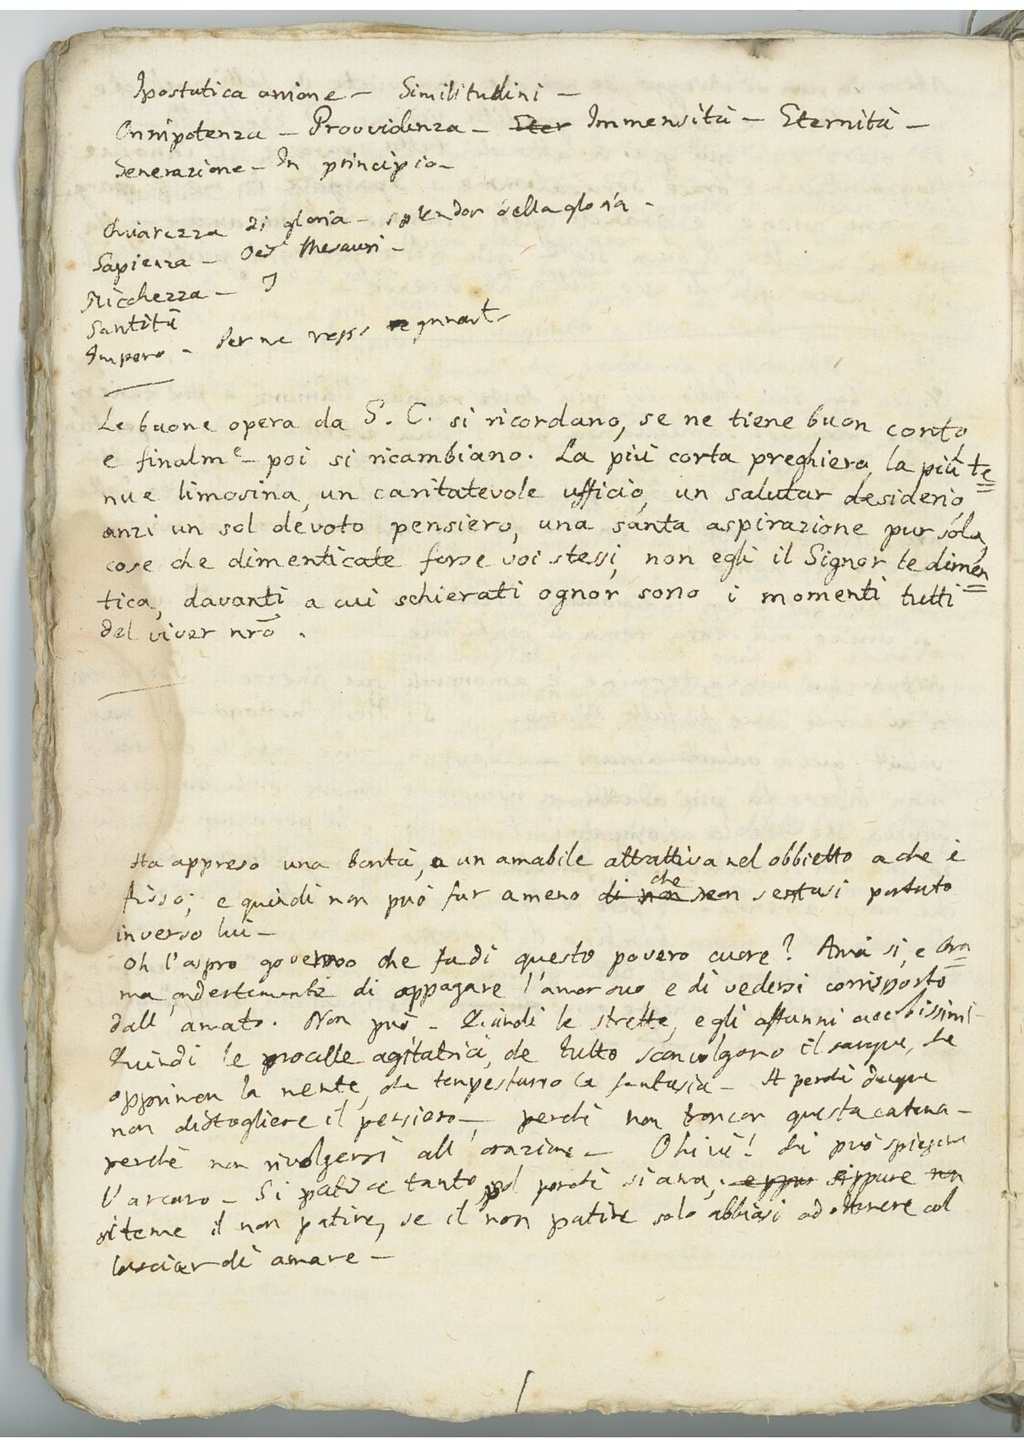 Ipostatica unione – Similitudini –
Onnipotenza – Provvidenza – Eter Immensità – Eternità –
Generazione – In principio –
Chiarezza di gloria – splendor della gloria –
Sapienza – Oes thesauri –
Ricchezza –
Santità
Impero – Per me reges regnant –
Le buone opera da G. C. si ricordano, se ne tiene buon conto,
e finalme poi si ricambiano. La più corta preghiera, la più te=
nue limosina, un caritatevole ufficio, un salutar desiderio,
anzi un sol devoto pensiero, una santa aspirazione pur sola,
cose che dimenticate forse voi stessi, non egli il Signor le dimen=
tica, davanti a cui schierati ognor sono i momenti tutti
del viver nrō.
Ha appreso una bontà, o un amabile attrattiva nel obbietto a che è
fisso; e quindi non può far ameno di non sen che sentasi portato
inverso lui –
Oh l'aspro governo che fa di questo povero cuore? Ama si, e bra=
ma ardentemente di appagare l'amor suo e di vedersi corrisposto
dall'amato. Non può – Quindi le strette, e gli affanni acerbissimi –
Quindi le procelle agitatrici, che tutto sconvolgono il sangue, che
opprimon la mente, che tempestano la fantasia – A perchè dunque
non distogliere il pensiero – perchè non troncar questa catena –
perchè non rivolgersi all'orazione – Ohivè! Chi può spiegare
l'arcano – Si patisce tanto sol perchè si ama, eppur eppure non
si teme il non patire, se il non patire solo abbiasi ad ottenere col
lasciar di amare –